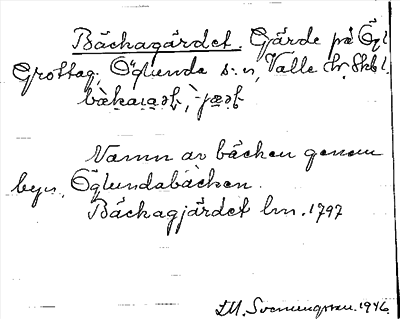 Bäckagärdet. Gärde på Ögl.
Grottag. Öglunda s:n, Valle hr, Skbl.
Namn av bäcken genom
byn, Öglundabäcken.
Bäckagjärdet lm. 1797
I.M. Svenungsson. 1946.